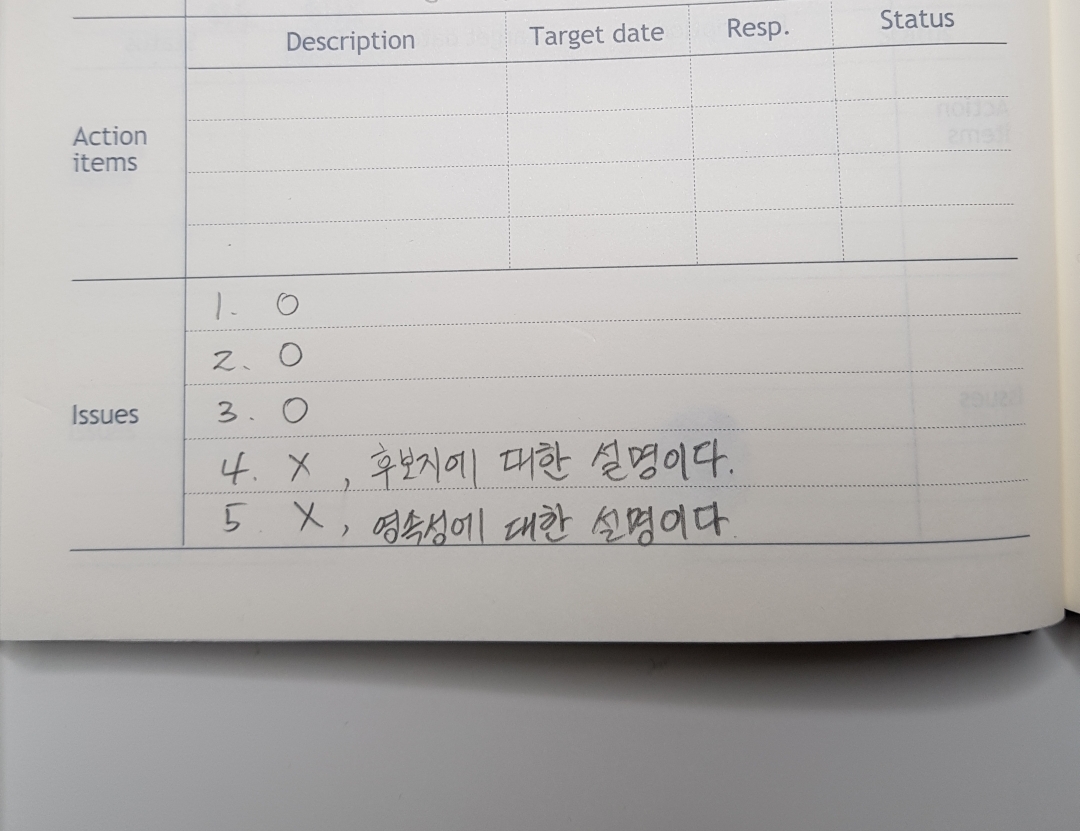 Description Target date Resp. Status
Action
items
1. O
2. O
3. O
Issues
4. X , 후보지에 대한 설명이다.
5 X , 영속성에 대한 설명이다.